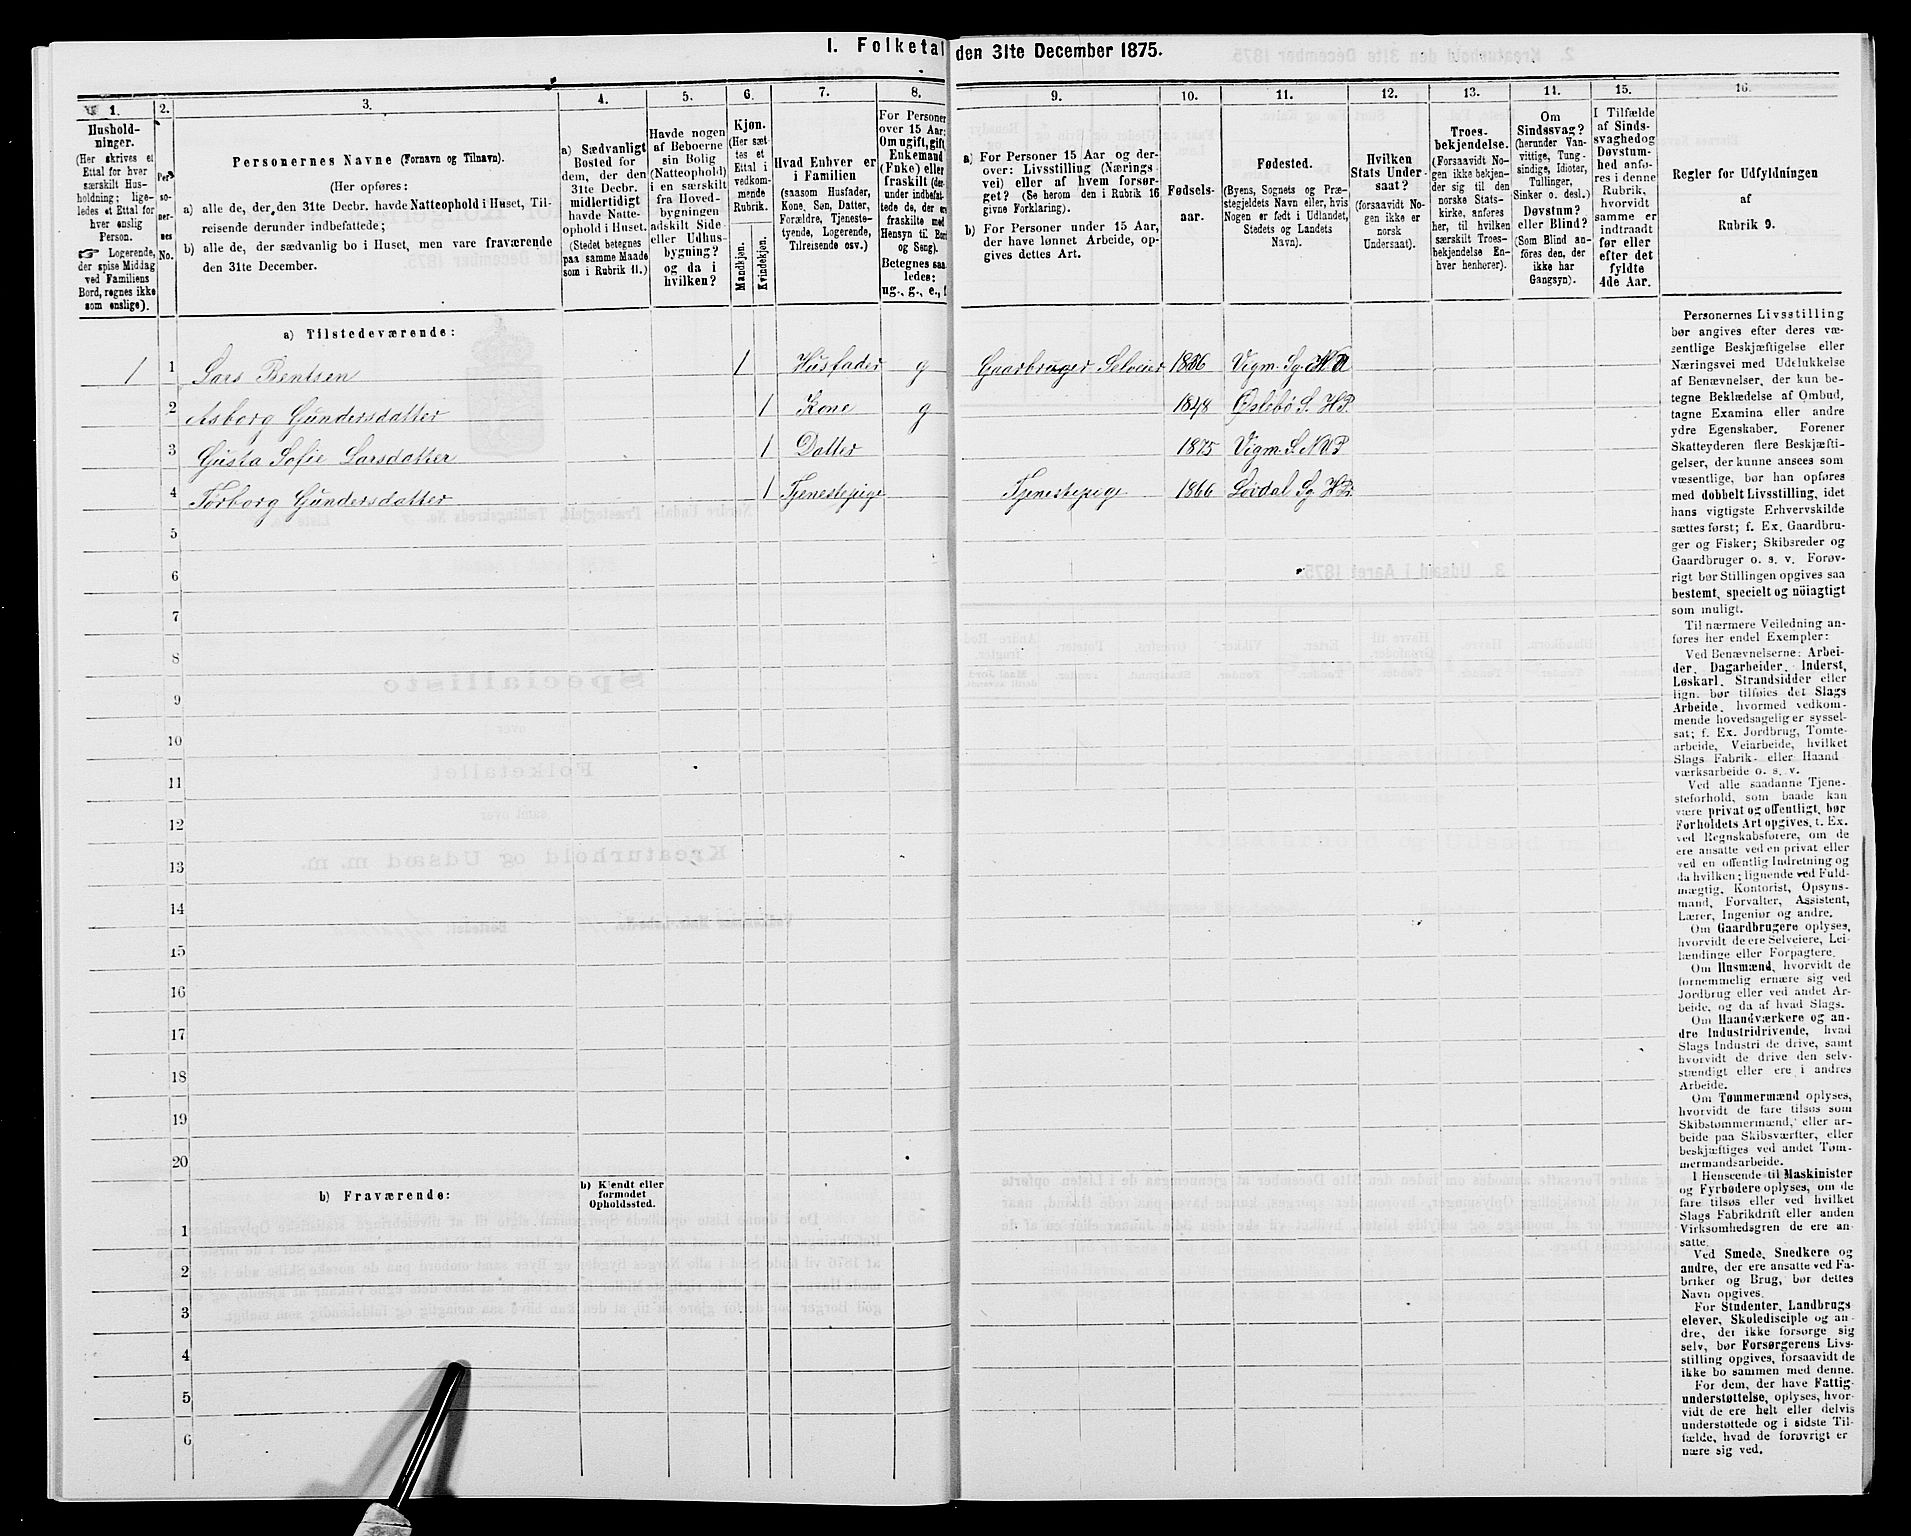 I. Folketal den 31te December 1875.
1. 2. 3. 4. 5. 6. 7. 8. 9. 10. 11. 12. 13. 14. 15. 16.
Hushold-
ninger.
(Her skrives et
Ettal for hver
særskilt Hus-
holdning; lige-
ledes et Ettal for
hver enslig
Person.
☞ Logerende,
der spise Middag
ved Familiens
Bord, regnes ikke
som enslige).
Per-
so-
ner-
nes
No.
Personernes Navne (Fornavn og Tilnavn).
(Her opføres:
a) alle de, der den 31te Decbr. havde Natteophold i Huset, Til-
reisende derunder indbefattede;
b) alle de, der sædvanlig bo i Huset, men vare fraværende
den 31te December.
a) Sædvanligt
Bosted for
dem, der den
31te Decbr.
midlertidigt
havde Natte-
ophold i Huset.
(Stedet betegnes
paa samme Maade
som i Rubrik 11.)
Havde nogen
af Beboerne
sin Bolig
(Natteophold)
i en særskilt
fra Hoved-
bygningen
adskilt Side-
eller Udhus-
bygning?
og da i
hvilken?
Kjøn.
(Her sæt-
tes et
Ettal i
vedkom-
mende
Rubrik.
Mandkjøn.
Kvindekjøn.
Hvad Enhver er
i Familien
(saasom Husfader,
Kone, Søn, Datter,
Forældre, Tjeneste-
tyende, Logerende,
Tilreisende osv.)
For Personer
over 15 Aar:
Om ugift, gift,
Enkemand
(Enke) eller
fraskilt (der-
under indbefat-
tede de, der ere
fraskilte med
Hensyn til Bord
og Seng).
Betegnes saa-
ledes:
ug., g., e., f.
a) For Personer 15 Aar og der-
over: Livsstilling (Nærings-
vei) eller af hvem forsør-
get? (Se herom den i Rubrik 16
givne Forklaring).
b) For Personer under 15 Aar,
der have lønnet Arbeide, op-
gives dettes Art.
Fødsels-
aar.
Fødested.
(Byens, Sognets og Præ-
stegjeldets Navn eller, hvis
Nogen er født i Udlandet,
Stedets og Landets
Navn).
Hvilken
Stats Under-
saat?
(forsaavidt No-
gen ikke er
norsk
Undersaat).
Troes-
bekjendelse.
(Forsaavidt No-
gen ikke bekjen-
der sig til den
norske Stats-
kirke, anføres
her, til hvilken
særskilt Troes-
bekjendelse En-
hver henhører).
Om
Sindssvag?
(herunder Van-
vittige, Tung-
sindige, Idioter,
Tullinger,
Sinker o. desl.)
Døvstum?
eller Blind?
(Som Blind an-
føres den, der
ikke har
Gangsyn).
I Tilfælde
af Sinds-
svaghed og
Døvstum-
hed anfø-
res i denne
Rubrik,
hvorvidt
samme er
indtraadt
før eller
efter det
fyldte
4de Aar.
Regler for Udfyldningen
af
Rubrik 9.
a) Tilstedeværende:
1 1 Lars Bentsen 1 Husfader g Gaardbruger Selveier 18 6 Vigm. Sg
2 Asborg Gundersdatter 1 Kone g 1848 Øslebø S. H P.
3 Gusta Sofie Larsdatter 1 Datter 1875 Vigm. S. N U P
4 Torborg Gundersdatter 1 Tjenestepige Tjenestepige 1866 Sg H Pr.
5
6
7
8
9
10
11
12
13
14
15
16
17
18
19
20
b) Fraværende: b) Kjendt eller
formodet
Opholdssted.
1
2
3
4
5
6
Personernes Livsstilling
bør angives efter deres væ-
sentlige Beskjæftigelse eller
Næringsvei med Udelukkelse
af Benævnelser, der kun be-
tegne Beklædelse af Ombud,
tagne Examina eller andre
ydre Egenskaber. Forener
Skatteyderen flere Beskjæfti-
gelser, der kunne ansees som
væsentlige, bør han opføres
med dobbelt Livsstilling, idet
hans vigtigste Erhvervskilde
sættes først; f. Ex. Gaardbru-
ger og Fisker; Skibsreder og
Gaardbruger o. s. v. Forøv-
rigt bør Stillingen opgives saa
bestemt, specielt og nöiagtigt
som muligt.
Til nærmere Veiledning an-
føres her endel Exempler:
Ved Benævnelserne: Arbei-
der, Dagarbeider, Inderst,
Løskarl, Strandsidder eller
lign. bør tilføies det Slags
Arbeide, hvormed vedkom-
mende hovedsagelig er syssel-
sat; f. Ex. Jordbrug, Tomte-
arbeide, Veiarbeide, hvilket
Slags Fabrik- eller Haand-
værksarbeide o. s. v.
Ved alle saadanne Tjene-
steforhold, som baade kan
være privat og offentligt, bør
Forholdets Art opgives, f. Ex.
ved Regnskabsførere, om de
ere ansatte ved en privat eller
ved en offentlig Indretning og
da hvilken; lignende ved Fuld-
mægtig, Kontorist, Opsyns-
mand, Forvalter, Assistent,
Lærer, Ingeniør og andre.
Om Gaardbrugere oplyses,
hvorvidt de ere Selveiere, Lei-
lændinge eller Forpagtere.
Om Husmænd, hvorvidt de
fornemmelig ernære sig ved
Jordbrug eller ved andet Ar-
beide, og da af hvad Slags.
Om Haandværkere og an-
dre Industridrivende, hvad
Slags Industri de drive, samt
hvorvidt de drive den selv-
stændigt eller ere i andres
Arbeide.
Om Tømmermænd oplyses,
hvorvidt de fare tilsøs som
Skibstømmermænd, eller ar-
beide paa Skibsværfter, eller
beskjæftiges ved andet Tøm-
mermandsarbeide.
I Henseende til Maskinister
og Fyrbødere oplyses, om de
fare tilsøs eller ved hvilket
Slags Fabrikdrift eller anden
Virksomhedsgren de ere an-
satte.
Ved Smede, Snedkere og
andre, der ere ansatte ved Fa-
briker og Brug, bør dettes
Navn opgives.
For Studenter, Landbrugs-
elever, Skoledisciple og an-
dre, der ikke forsørge sig
selv, bør Forsørgerens Livs-
stilling opgives, forsaavidt de
ikke bo sammen med denne.
For dem, der have Fattig-
understøttelse, oplyses, hvor-
vidt de ere helt eller delvis
understøttede og i sidste Til-
fælde, hvad de forøvrigt er-
nære sig ved.